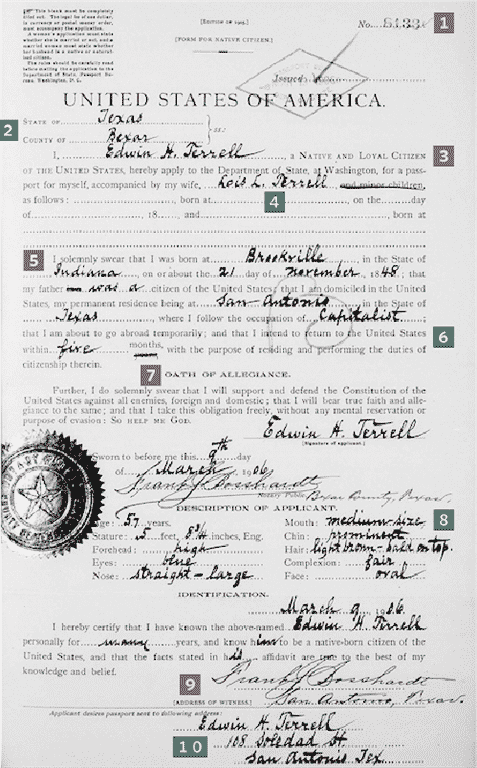 This blank must be completely
filled out. The legal fee of one dollar,
in currency or postal money order,
must accompany the application.
A woman's application must state
whether she is married or not, and a
married woman must state whether
her husband is a native or natural-
ized citizen.
The rules should be carefully read
before mailing the application to the
Department of State, Passport Bu-
reau, Washington, D. C.
[EDITION OF 1905.]
[FORM FOR NATIVE CITIZEN.]
No.
1
Issued
UNITED STATES OF AMERICA.
2
STATE OF Texas
COUNTY OF Bexar
ss:
I, Edwin H. Terrell, a NATIVE AND LOYAL CITIZEN
3
OF THE UNITED STATES, hereby apply to the Department of State, at Washington, for a pass-
port for myself, accompanied by my wife, Lois L. Terrell and minor children,
as follows: born at on the day
4
of, 18 and born at
5
I solemnly swear that I was born at Brookville, in the State of
Indiana, on or about the 21 day of November, 1848; that
my father was a citizen of the United States; that I am domiciled in the United
States, my permanent residence being at San Antonio, in the State of
Texas, where I follow the occupation of Capitalist;
that I am about to go abroad temporarily; and that I intend to return to the United States
6
within five months, with the purpose of residing and performing the duties of
citizenship therein.
7
OATH OF ALLEGIANCE.
Further, I do solemnly swear that I will support and defend the Constitution of the
United States against all enemies, foreign and domestic; that I will bear true faith and alle-
giance to the same; and that I take this obligation freely, without any mental reservation or
purpose of evasion: SO HELP ME GOD.
Edwin H. Terrell
[Signature of applicant.]
Sworn to before me this 9th day
of March, 1906
Frank J. Bosshardt
Notary Public, Bexar County, Texas.
DESCRIPTION OF APPLICANT.
8
Age: 57 years. Mouth: medium-size
Stature: 5 feet, 8¾ inches, Eng. Chin: prominent
Forehead: high Hair: light brown - bald on top.
Eyes: blue Complexion: fair
Nose: straight - large Face: oval
IDENTIFICATION.
March 9, 1906
I hereby certify that I have known the above-named Edwin H. Terrell
personally for many years, and know him to be a native-born citizen of the
United States, and that the facts stated in his affidavit are true to the best of my
knowledge and belief.
9
Frank J. Bosshardt
[ADDRESS OF WITNESS.] San Antonio, Texas.
Applicant desires passport sent to following address:
Edwin H. Terrell
10
108 Soledad St.
San Antonio Tex